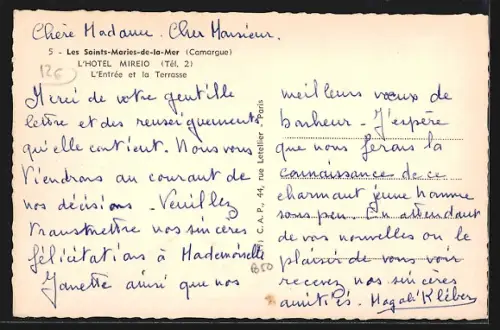 Chère Madame. Cher Monsieur.
5 - Les Saints-Maries-de-la-Mer (Camargue)
L'HOTEL MIREIO (Tél. 2)
L'Entrée et la Terrasse
12€
Merci de votre gentille
lettre et des renseignements
qu'elle contient. Nous vous
tiendrons au courant de
nos décisions. Veuillez
transmettre nos sincères
félicitations à Mademoiselle
Ginette ainsi que nos
B50
C.A.P., 44, rue Letellier - Paris
meilleurs vœux de
bonheur. J'espère
que nous ferons la
connaissance de ce
charmant jeune homme
sous peu. En attendant
de vos nouvelles ou le
plaisir de vous voir
recevez nos sincères
amitiés. Magali Kléber